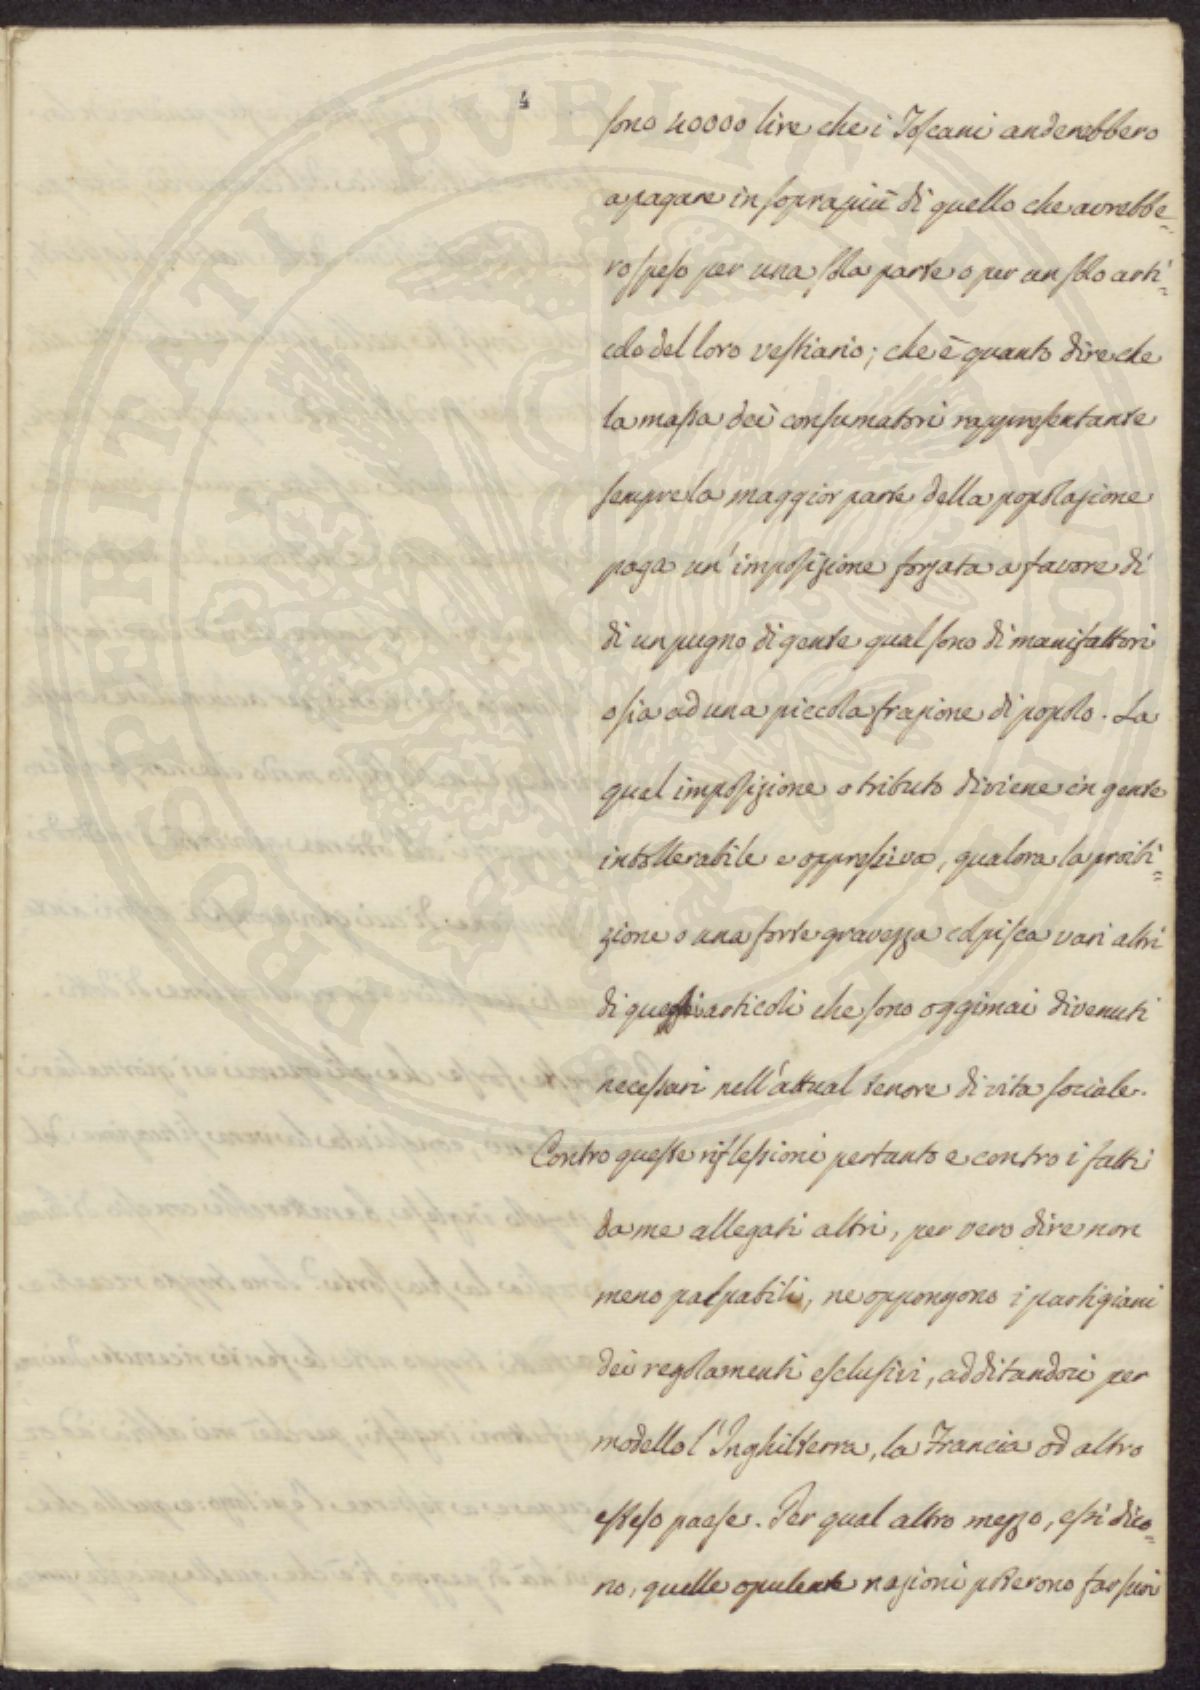 4
sono 40000 lire che i Toscani anderebbero
a pagare in soprapiù di quello che avrebbe=
ro speso per una sola parte o per un solo arti=
colo del loro vestiario; che è quanto dire che
la massa dei consumatori rappresentante
sempre la maggior parte della popolazione
paga un' imposizione forzata a favore di
di un pugno di gente qual sono di manifattori
osia ad una piccola frazione di popolo. La
qual imposizione o tributo diviene in gente
intollerabile e oppressiva, qualora la proibi=
zione o una forte gravezza colpisca vari altri
di quegli articoli che sono oggimai divenuti
necessari nell'attual tenore di vita sociale.
Contro queste riflessioni pertanto e contro i fatti
da me allegati altri, per vero dire non
meno palpabili, ne oppongono i partigiani
dei regolamenti esclusivi, additandoci per
modello l'Inghilterra, la Francia od altro
esteso paese. Per qual altro mezzo, essi dico=
no, quelle opulente nazioni poterono far suoi
PUBLICAE PROSPERITATI